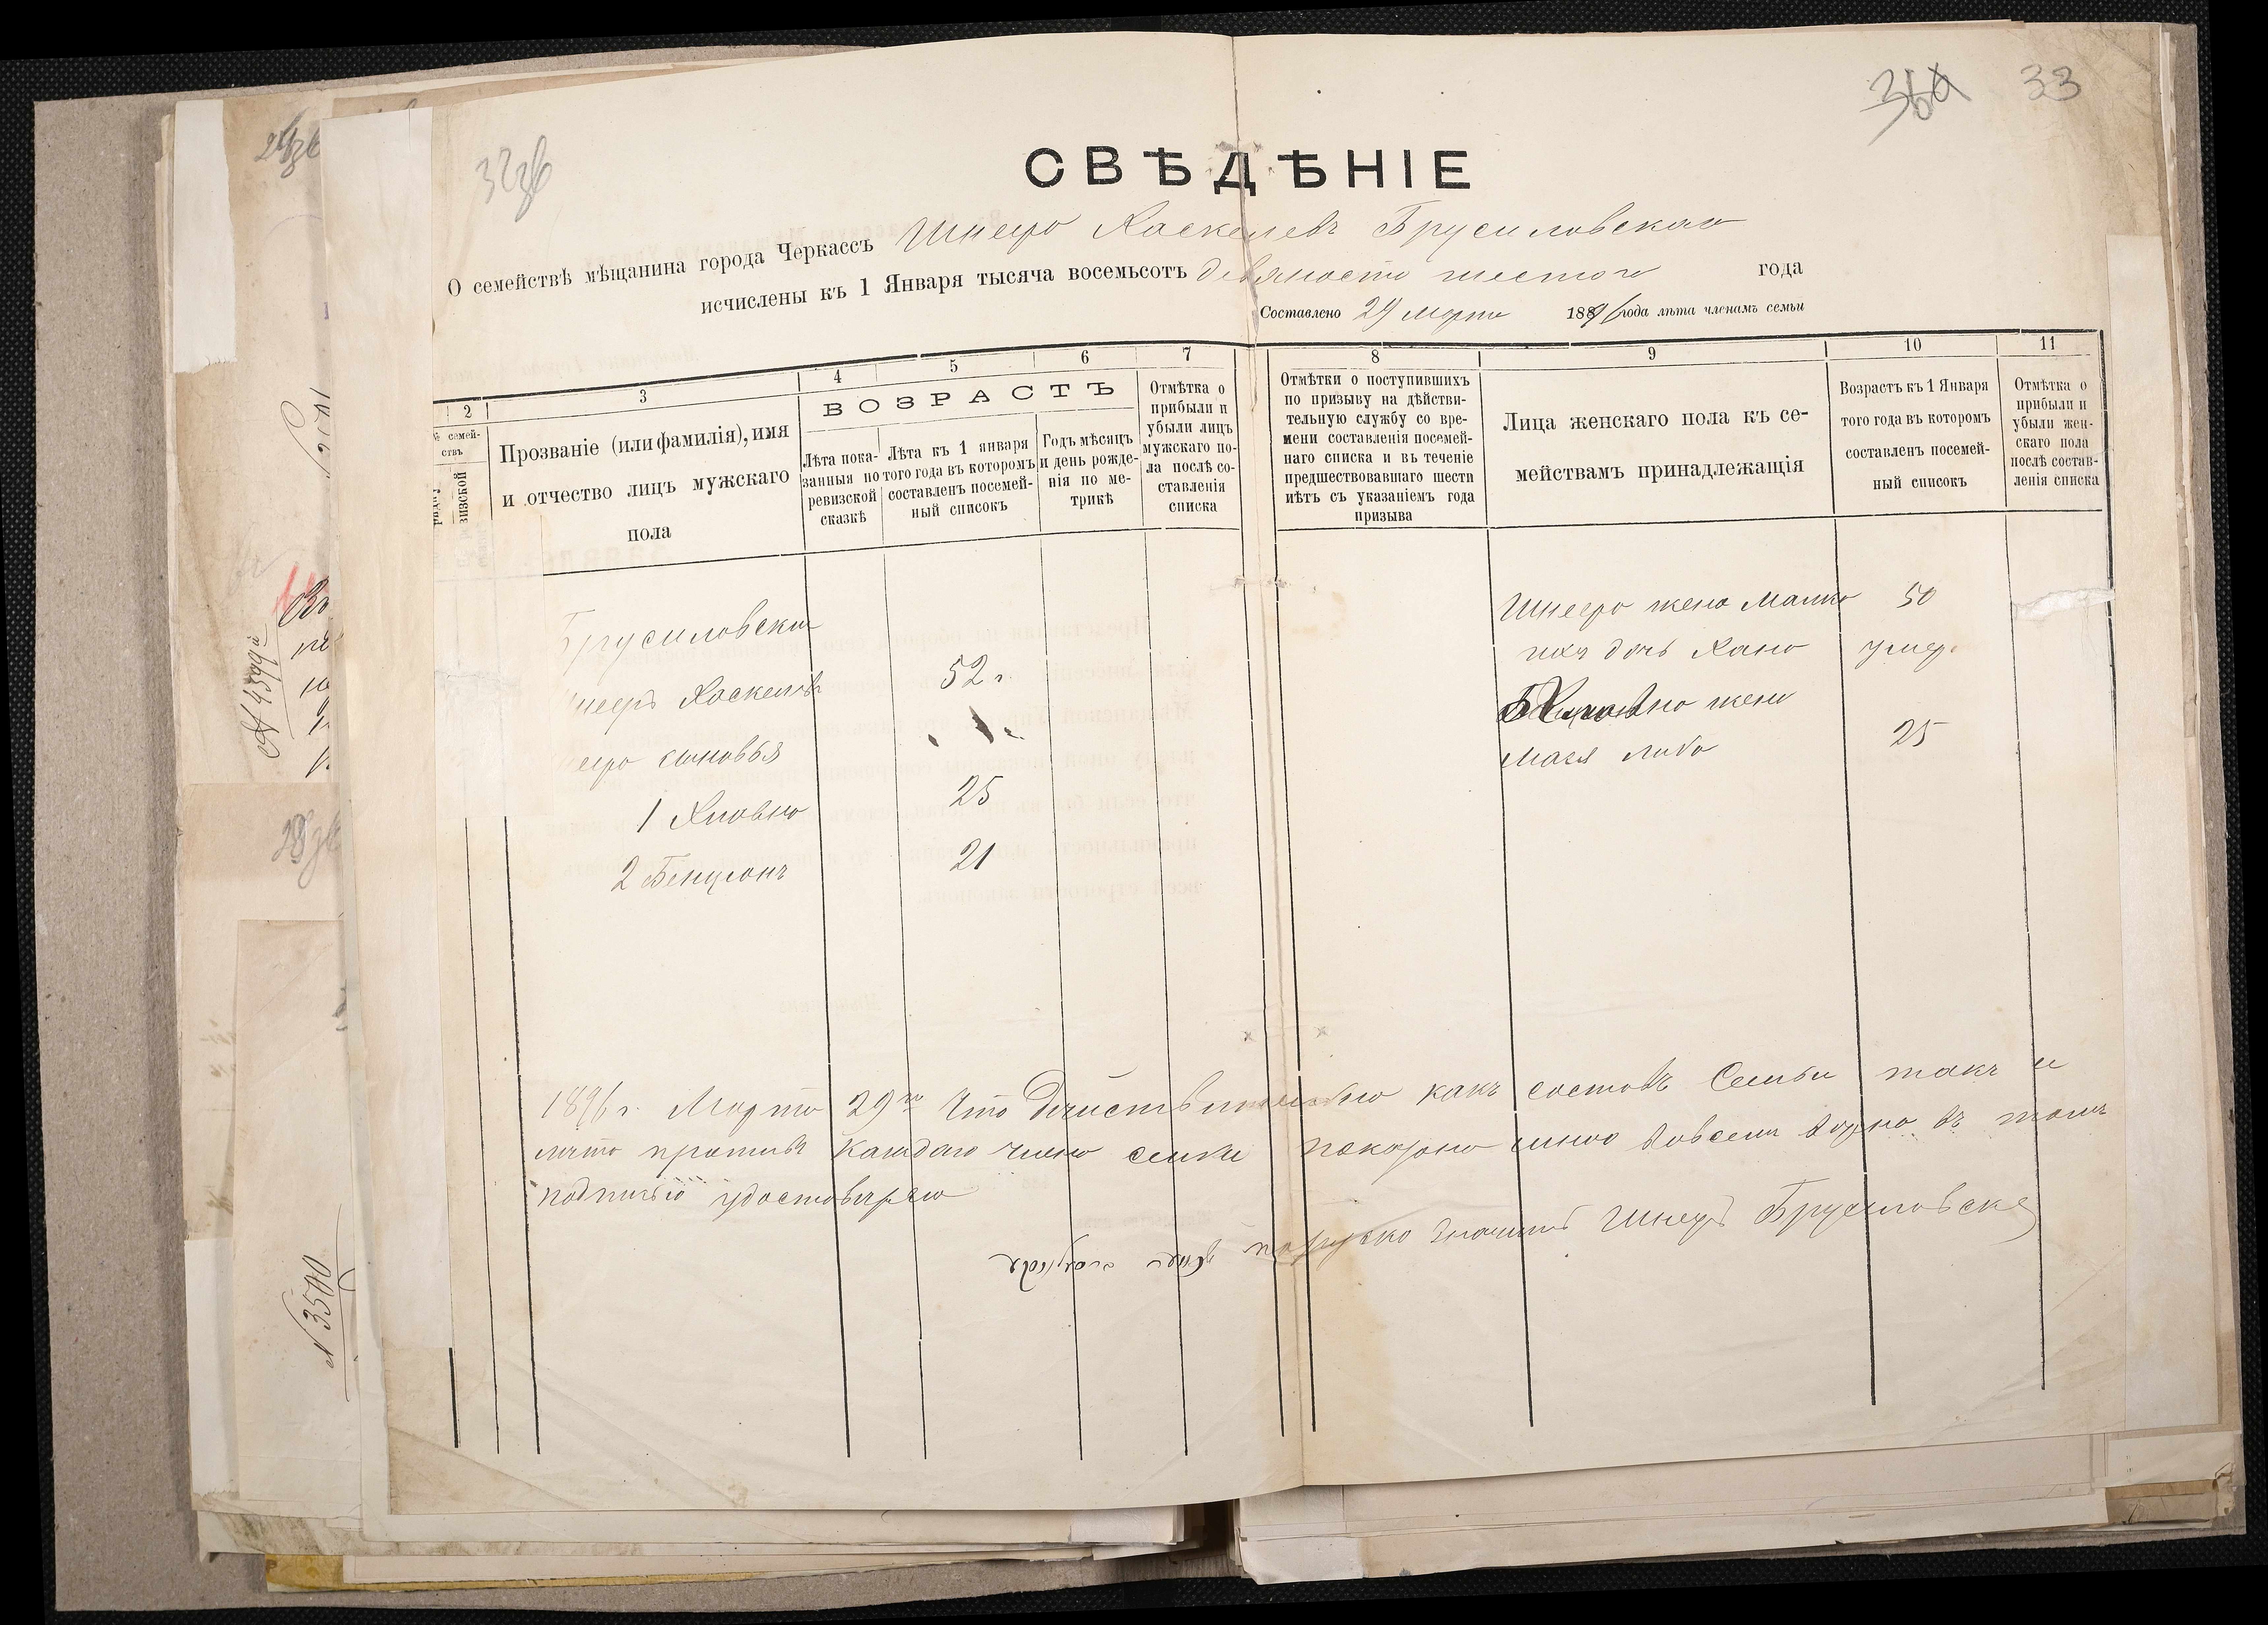 32зв
36а 33
СВѢДѢНІЕ
О семействѣ мѣщанина города Черкассъ Шнеера Хаскелевъ Брусиловскаго
исчислены къ 1 Января тысяча восемьсотъ девяносто шестого года
Составлено 29 марта 1896 года лѣта членамъ семьи
2 3 4 5 6 7 8 9 10 11
№ семействъ
ревизской
Прозваніе (или фамилія), имя
и отчество лицъ мужскаго
пола
ВОЗРАСТЪ
Лѣта показанныя по ревизской сказкѣ
Лѣта къ 1 января того года въ которомъ составленъ посемейный списокъ
Годъ мѣсяцъ и день рожденія по метрикѣ
Отмѣтка о прибыли и убыли лицъ мужскаго пола послѣ составленія списка
Отмѣтки о поступившихъ
по призыву на дѣйстви-
тельную службу со вре-
мени составленія посемей-
наго списка и въ теченіе
предшествовавшаго шести
лѣтъ съ указаніемъ года
призыва
Лица женскаго пола къ се-
мействамъ принадлежащія
Возрастъ къ 1 Января
того года въ которомъ
составленъ посемей-
ный списокъ
Отмѣтка о
прибыли и
убыли жен-
скаго пола
послѣ состав-
ленія списка
Брусиловски
Шнееръ Хаскелевъ 52 г.
сыновья
1 Хповна 25
2 Бенционъ 21
Шнеера жена Малка 50
ихъ дочь Хана умер.
жена
Мася Либа 25
1896 г. Марта 29го Что действительно какъ составъ Семьи такъ и
лѣта противъ каждаго члена семьи показано мною совсемъ верно въ томъ
подписью удостоверяю
Шнеръ Брусиловске
№ 4599й
№ 3500